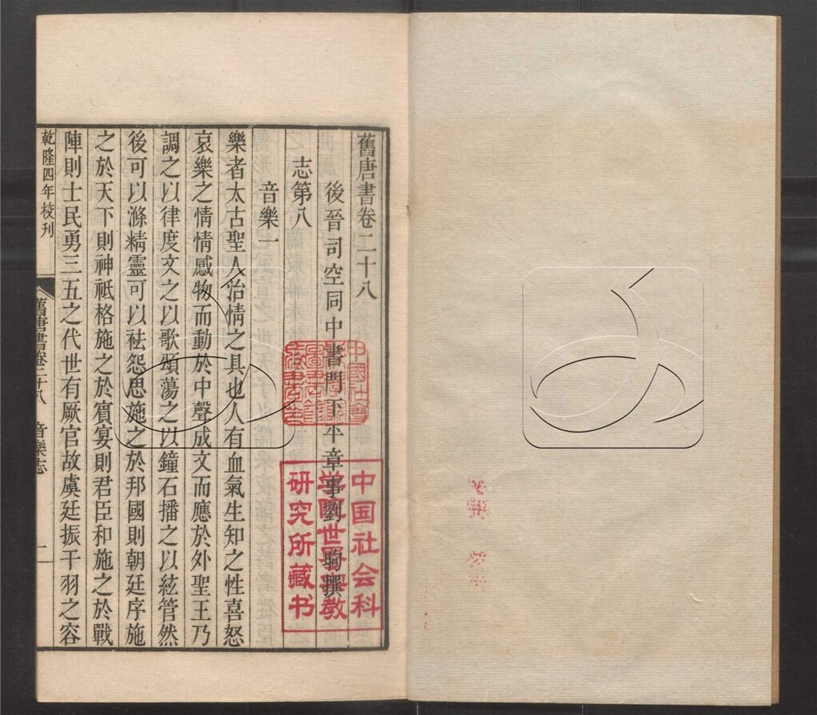 舊唐書卷二十八
後晉司空同中書門下平章事劉昫撰
志第八
音樂一
樂者太古聖人治情之具也人有血氣生知之性喜怒
哀樂之情情感物而動於中聲成文而應於外聖王乃
調之以律度文之以歌頌蕩之以鐘石播之以絃管然
後可以滌精靈可以祛怨思施之於邦國則朝廷序施
之於天下則神祇格施之於賓宴則君臣和施之於戰
陣則士民勇三五之代世有厥官故虞廷振干羽之容
乾隆四年校刊
舊唐書卷二十八 音樂志
一
中国社会科
学院世界宗教
研究所藏书
中國社會